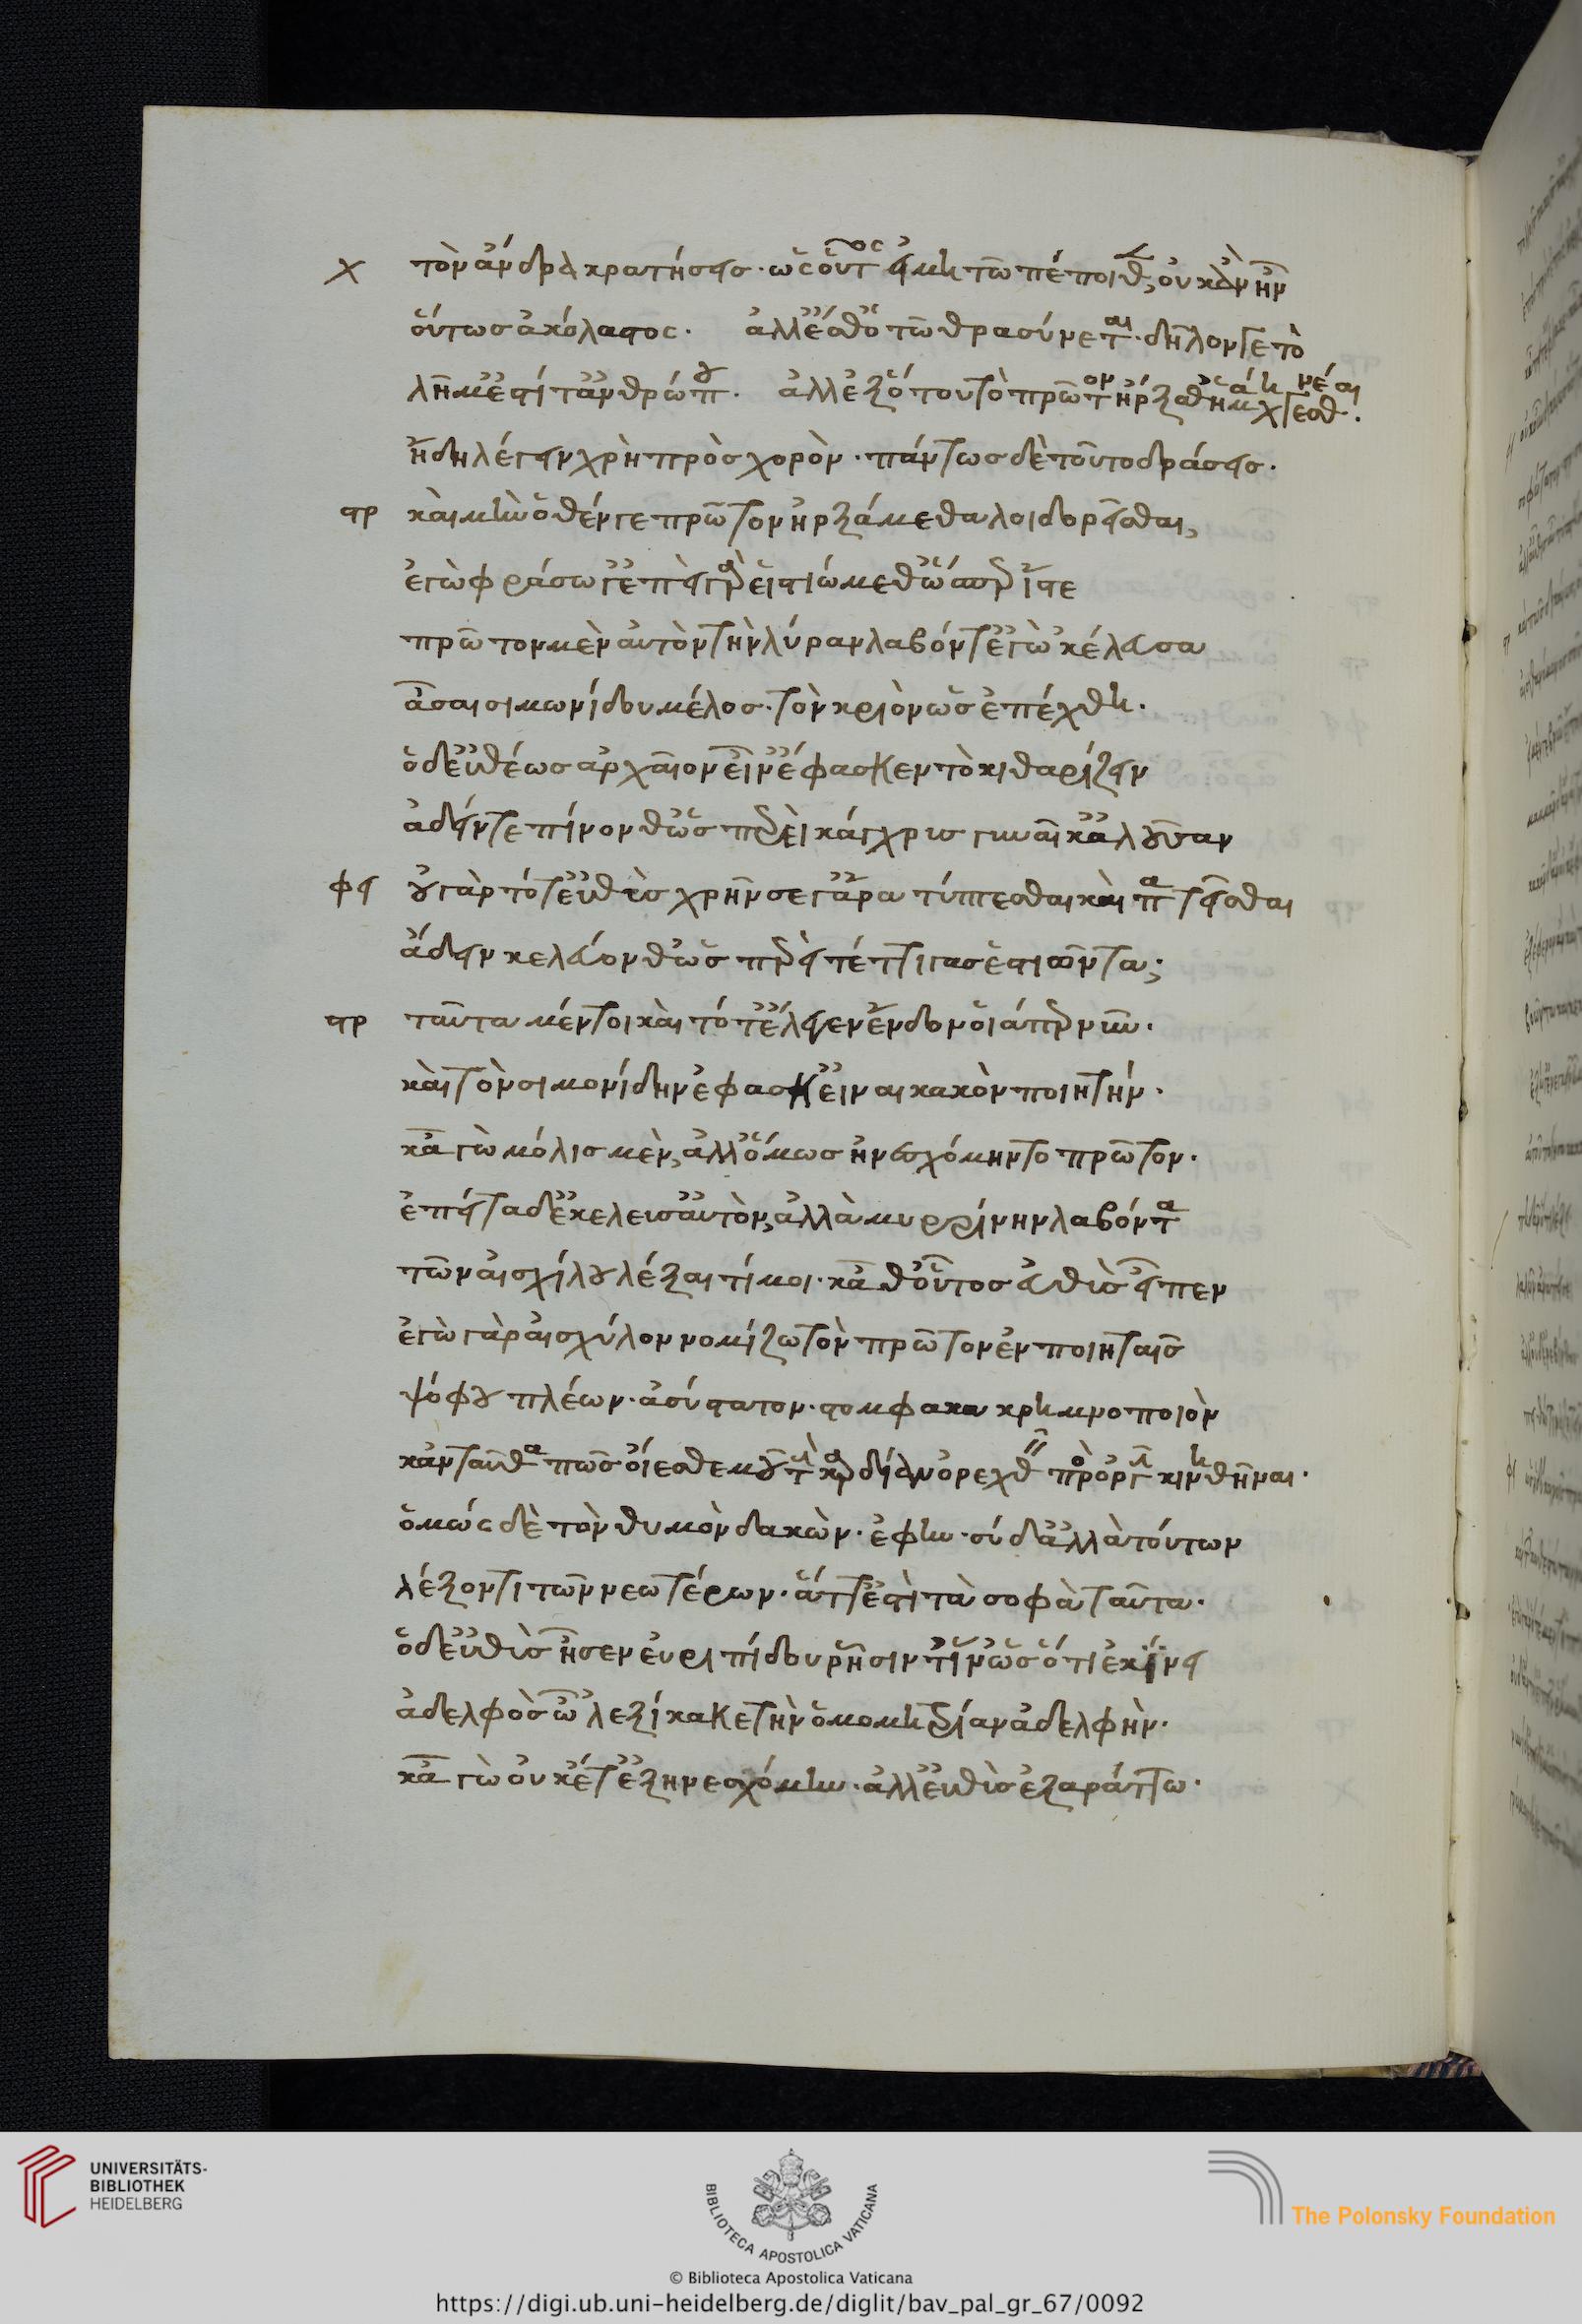 χ τὸν ἄνδρα κρατήσεις. ὡς οὗτος εἰ μή τω πέποιθεν, οὐκ ἂν ἦν
οὕτως ἀκόλαστος. ἀλλ' ἔσθ' ὅτω θρασύνεται. δῆλον γε τὸ
λῆμ' ἐστί τἀνθρώπου. ἀλλ' ἐξ ὅτου τὸ πρῶτον ἤρξαθ' ἡ μάχη γενέσθαι.
ἤδη λέγειν χρὴ πρὸς χορὸν. πάντως δὲ τοῦτο δράσεις.
στρ καὶ μὴν ὅθέν γε πρῶτον ἠρξάμεθα λοιδορεῖσθαι,
ἐγὼ φράσω γ' ἐπεὶ γὰρ εἱστιώμεθ' ὥσπερ ἴστε
πρῶτον μὲν αὐτὸν τὴν λύραν λαβόντ' ἐγὼ 'κέλευσα
ᾆσαι σιμωνίδου μέλος. τὸν κριὸν ὡς ἐπέχθη.
ὁ δ' εὐθέως ἀρχαῖον εἶν' ἔφασκεν τὸ κιθαρίζειν
ᾄδειν τε πίνονθ' ὡς περεὶ κάγχρις γυναῖκ' ἀλοῦσαν
φει οὐ γὰρ τότ' εὐθὺς χρῆν σε γ' ἆρα τύπτεσθαι καὶ πατεῖσθαι
ᾄδειν κελεύονθ' ὡς περεὶ τέττιγας ἑστιῶντα;
στρ ταῦτα μέντοι καὶ τότ' ἔλεγεν ἔνδον οἷάπερ νῦν.
καὶ τὸν σιμονίδην ἔφασκ' εἶναι κακὸν ποιητήν.
κἀγὼ μόλις μὲν, ἀλλ' ὅμως ἠνεσχόμην τὸ πρῶτον.
ἔπειτα δ' ἐκέλευσ' αὐτὸν, ἀλλὰ μυρρίνην λαβόντα
τῶν αἰσχίλου λέξαι τί μοι. κᾆθ' οὗτος εὐθὺς εἶπεν
ἐγὼ γὰρ αἰσχύλον νομίζω τὸν πρῶτον ἐν ποιηταῖς
ψόφου πλέων. ἀσύστατον. στομφακα κρημνοποιὸν
κἀνταῦθα πῶς οἴεσθε μοῦ τὴν καρδίαν ὀρεχθεῖν πρὸ ὀργὴν κινηθῆναι.
ὁμώς δὲ τὸν θυμὸν δακὼν. ἔφην. σύ δ' ἀλλὰ τούτων
λέξον τι τῶν νεωτέρων. ἅττ' ἐστὶ τὰ σοφὰ ταῦτα.
ὁ δ' εὐθὺς ᾖσεν εὐριπίδου ῥῆσιν τίν' ὡς ὅτι ἐκίνει
ἀδελφὸς ὦ 'λεξίκακε τὴν ὁμομητρίαν ἀδελφὴν.
κἀγὼ οὐκέτ' ἐξηνεσχόμην. ἀλλ' εὐθὺς ἐξαράττω.
UNIVERSITÄTS-
BIBLIOTHEK
HEIDELBERG
BIBLIOTECA APOSTOLICA VATICANA
The Polonsky Foundation
© Biblioteca Apostolica Vaticana
https://digi.ub.uni-heidelberg.de/diglit/bav_pal_gr_67/0092